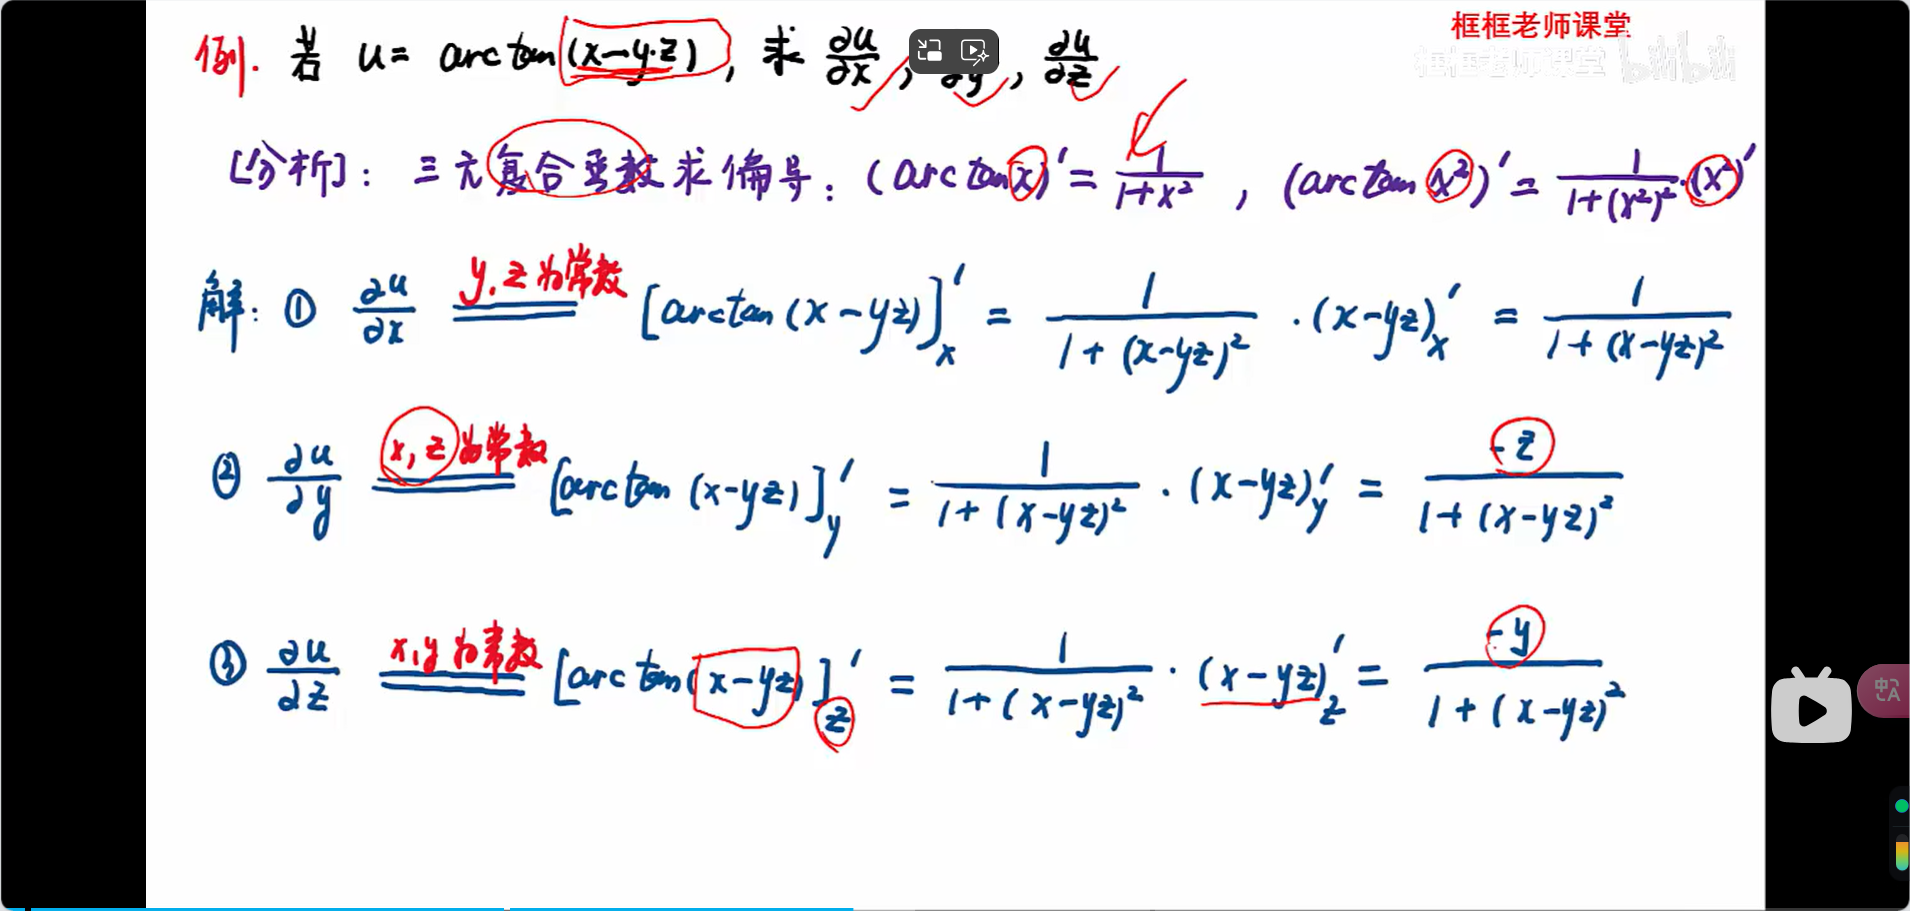 框框老师课堂
框框老师课堂 bilibili
例. 若 u = arctan(x-y·z), 求 ∂u/∂x, ∂y, ∂u/∂z
[分析]: 三元复合函数求偏导: (arctan x)' = 1/(1+x²), (arctan x²)' = 1/(1+(x²)²)·(x²)'
解: ① ∂u/∂x ==(y, z为常数)== [arctan(x-yz)]'x = 1/(1+(x-yz)²) · (x-yz)'x = 1/(1+(x-yz)²)
② ∂u/∂y ==(x, z为常数)== [arctan(x-yz)]'y = 1/(1+(x-yz)²) · (x-yz)'y = -z/(1+(x-yz)²)
③ ∂u/∂z ==(x, y为常数)== [arctan(x-yz)]'z = 1/(1+(x-yz)²) · (x-yz)'z = -y/(1+(x-yz)²)
中A